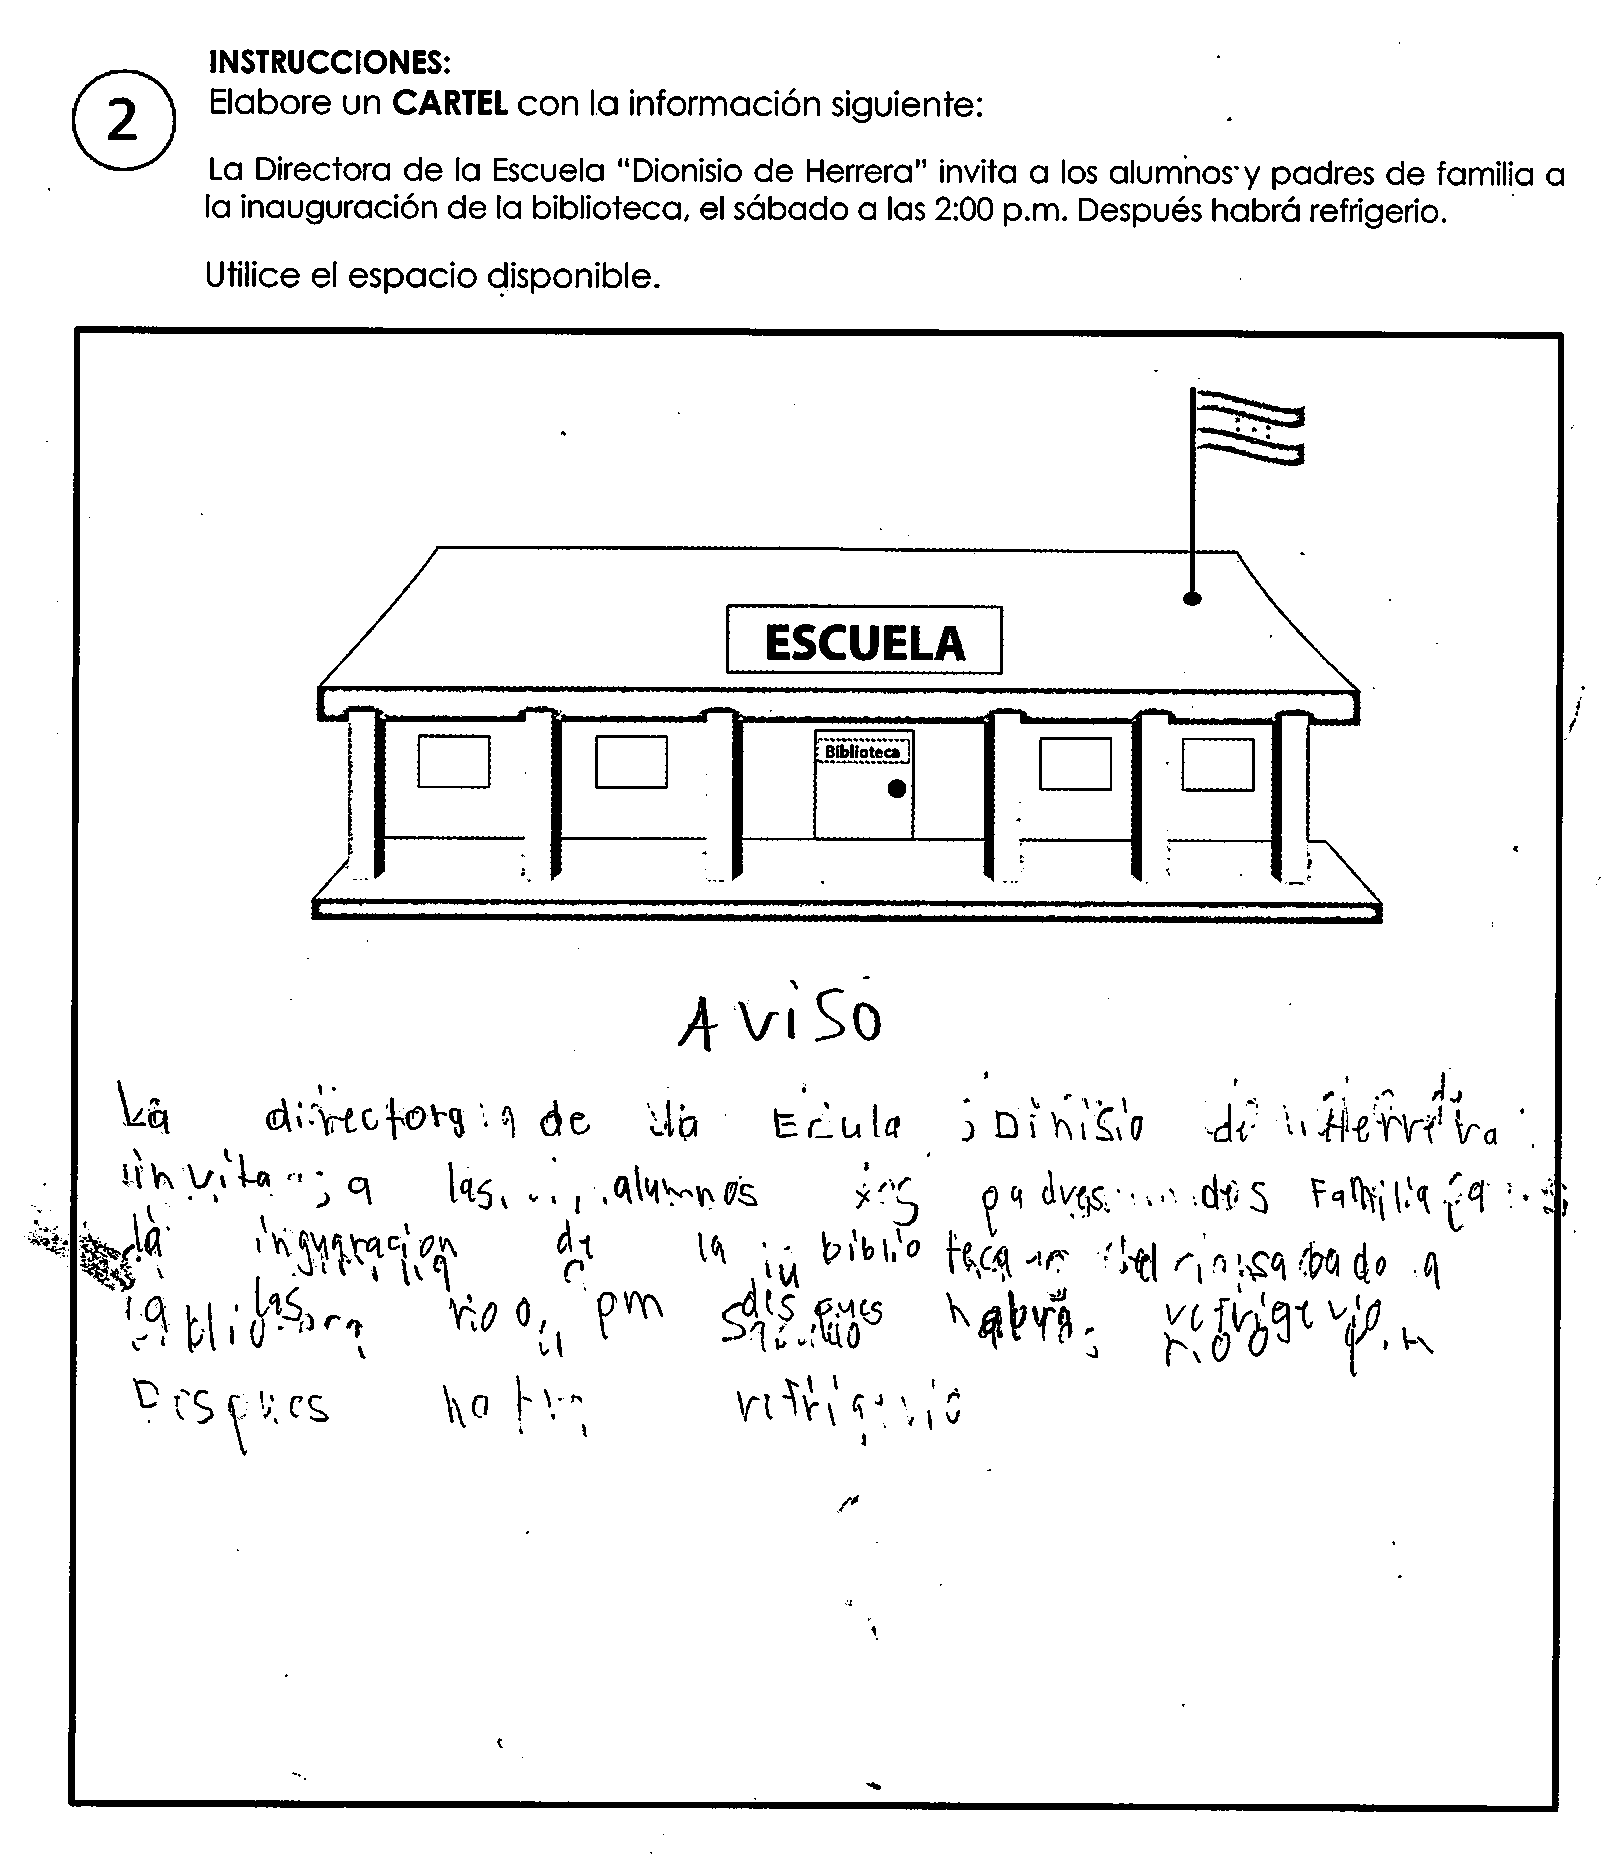 INSTRUCCIONES:
2
Elabore un CARTEL con la información siguiente:
La Directora de la Escuela "Dionisio de Herrera" invita a los alumnos y padres de familia a
la inauguración de la biblioteca, el sábado a las 2:00 p.m. Después habrá refrigerio.
Utilice el espacio disponible.
ESCUELA
Biblioteca
AViSO
La directora de la Ecula Dinisio de Herrera
invita a las alumnos padres Familia
la inguracion de la biblioteca el sabado a
las pm despues habra refrigerio
p.m
Despues refrigerio